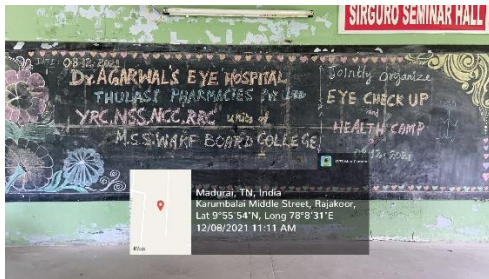 SIRGURO SEMINAR HALL
DATE: 08.12.2021
Dr. AGARWAL'S EYE HOSPITAL
THULASI PHARMACIES PV LTD
YRC, NSS, NCC, RRC units of
M.S.S. WAKF BOARD COLLEGE
Jointly Organize
EYE CHECK UP
and
HEALTH CAMP
Madurai, TN, India
Karumbalai Middle Street, Rajakoor,
Lat 9°55'54"N, Long 78°8'31"E
12/08/2021 11:11 AM